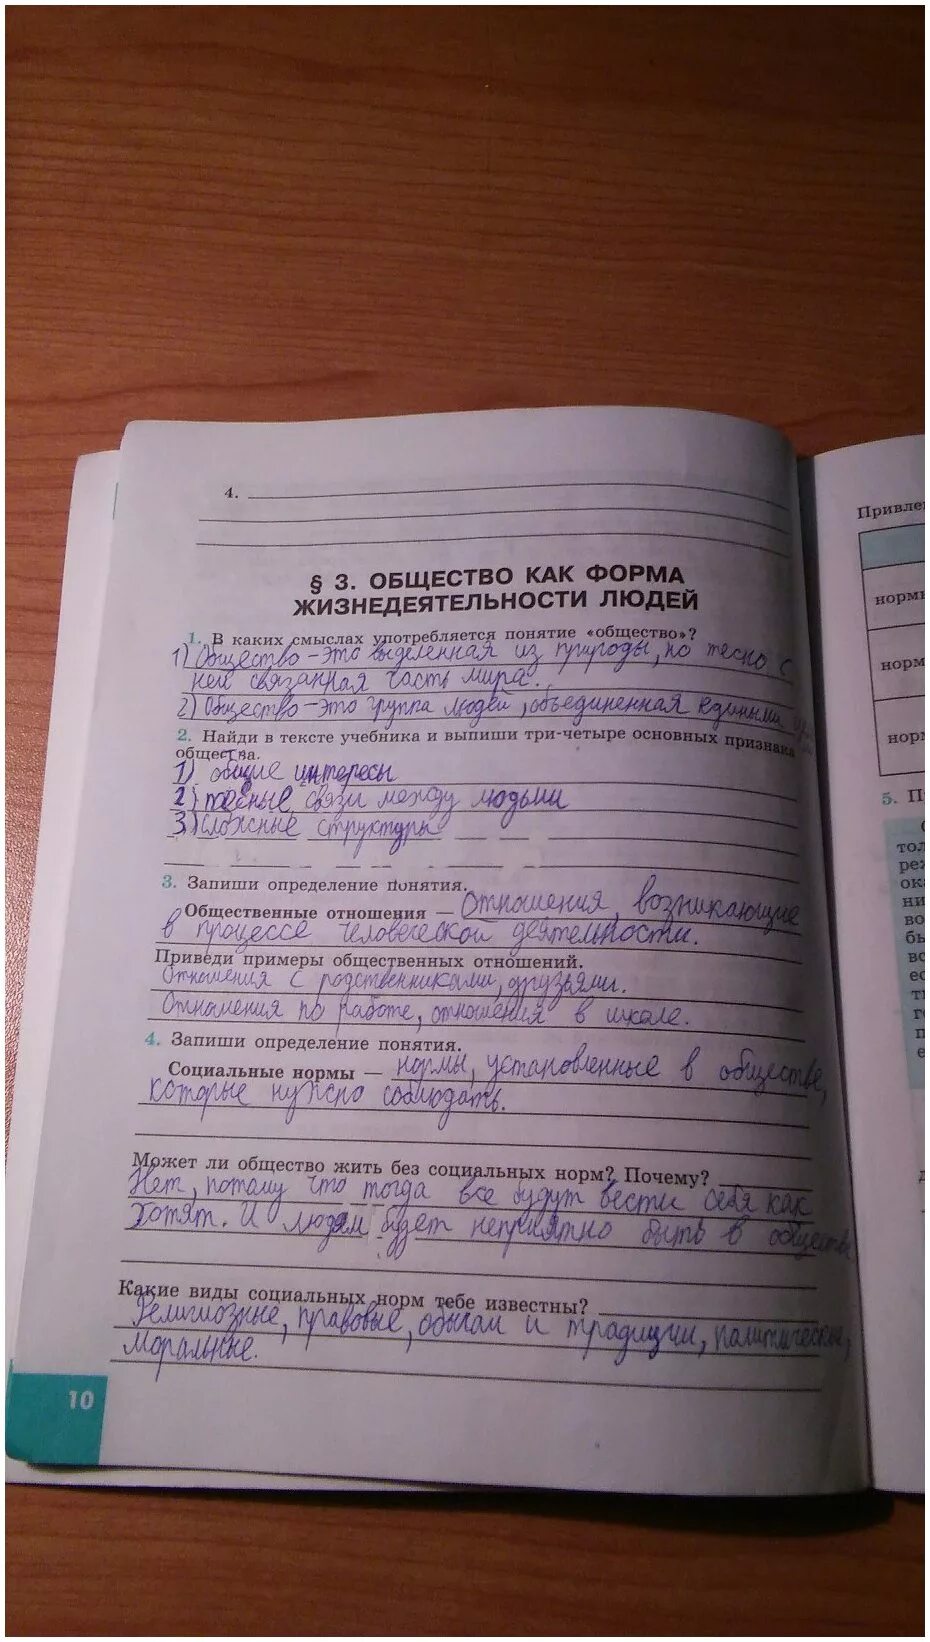 4.
§ 3. ОБЩЕСТВО КАК ФОРМА
ЖИЗНЕДЕЯТЕЛЬНОСТИ ЛЮДЕЙ
1. В каких смыслах употребляется понятие «общество»?
1) Общество - это выделенная из природы, но тесно с
ней связанная часть мира.
2) Общество - это группа людей, объединенная едиными
2. Найди в тексте учебника и выпиши три-четыре основных признака
общества.
1) общие интересы
2) тесные связи между людьми
3) сложные структуры
3. Запиши определение понятия.
Общественные отношения — Отношения, возникающие
в процессе человеческой деятельности.
Приведи примеры общественных отношений.
Отношения с родственниками, друзьями.
Отношения по работе, отношения в школе.
4. Запиши определение понятия.
Социальные нормы — нормы, установленные в обществе,
которые нужно соблюдать.
Может ли общество жить без социальных норм? Почему?
Нет, потому что тогда все будут вести себя как
хотят. И людям будет неприятно быть в обществе
Какие виды социальных норм тебе известны?
Религиозные, правовые, обычаи и традиции, политические,
моральные.
10
Привле
норм
норм
норм
5. П
тол
реж
ока
ни
во
бы
вс
ес
ти
го
п
е